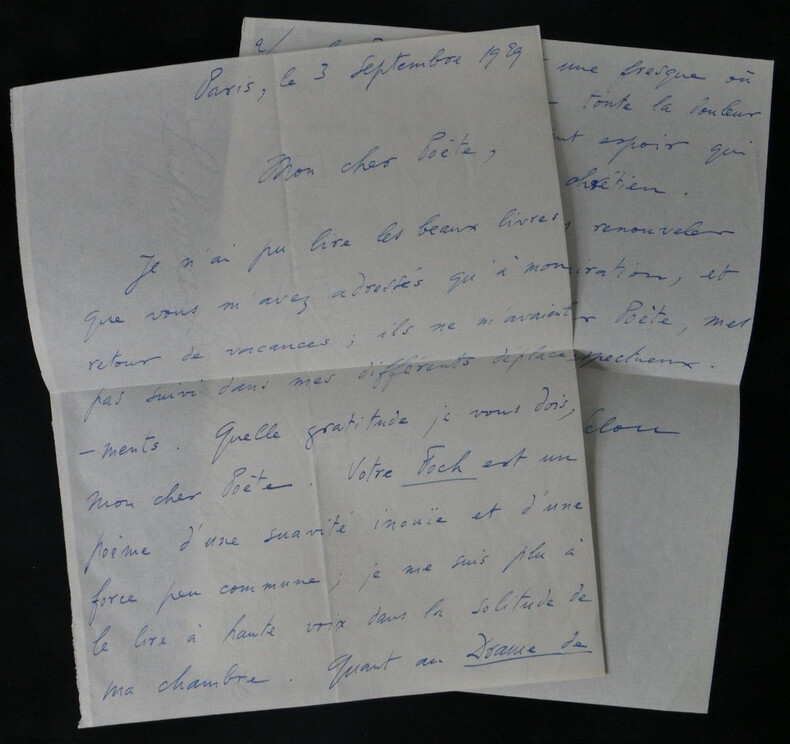 Paris, le 3 Septembre 1929
Mon cher Poète,
Je n'ai pu lire les beaux livres
que vous m'avez adressés qu'à mon
retour de vacances ; ils ne m'avaient
pas suivi dans mes différents déplace
-ments. Quelle gratitude je vous dois,
mon cher Poète. Votre Foch est un
poème d'une suavité inouïe et d'une
force peu commune ; je me suis plu à
le lire à haute voix dans la solitude de
ma chambre. Quant au Drame de
2/
une fresque où
toute la douleur
espoir qui
chrétien.
renouveler
et
Poète, mes